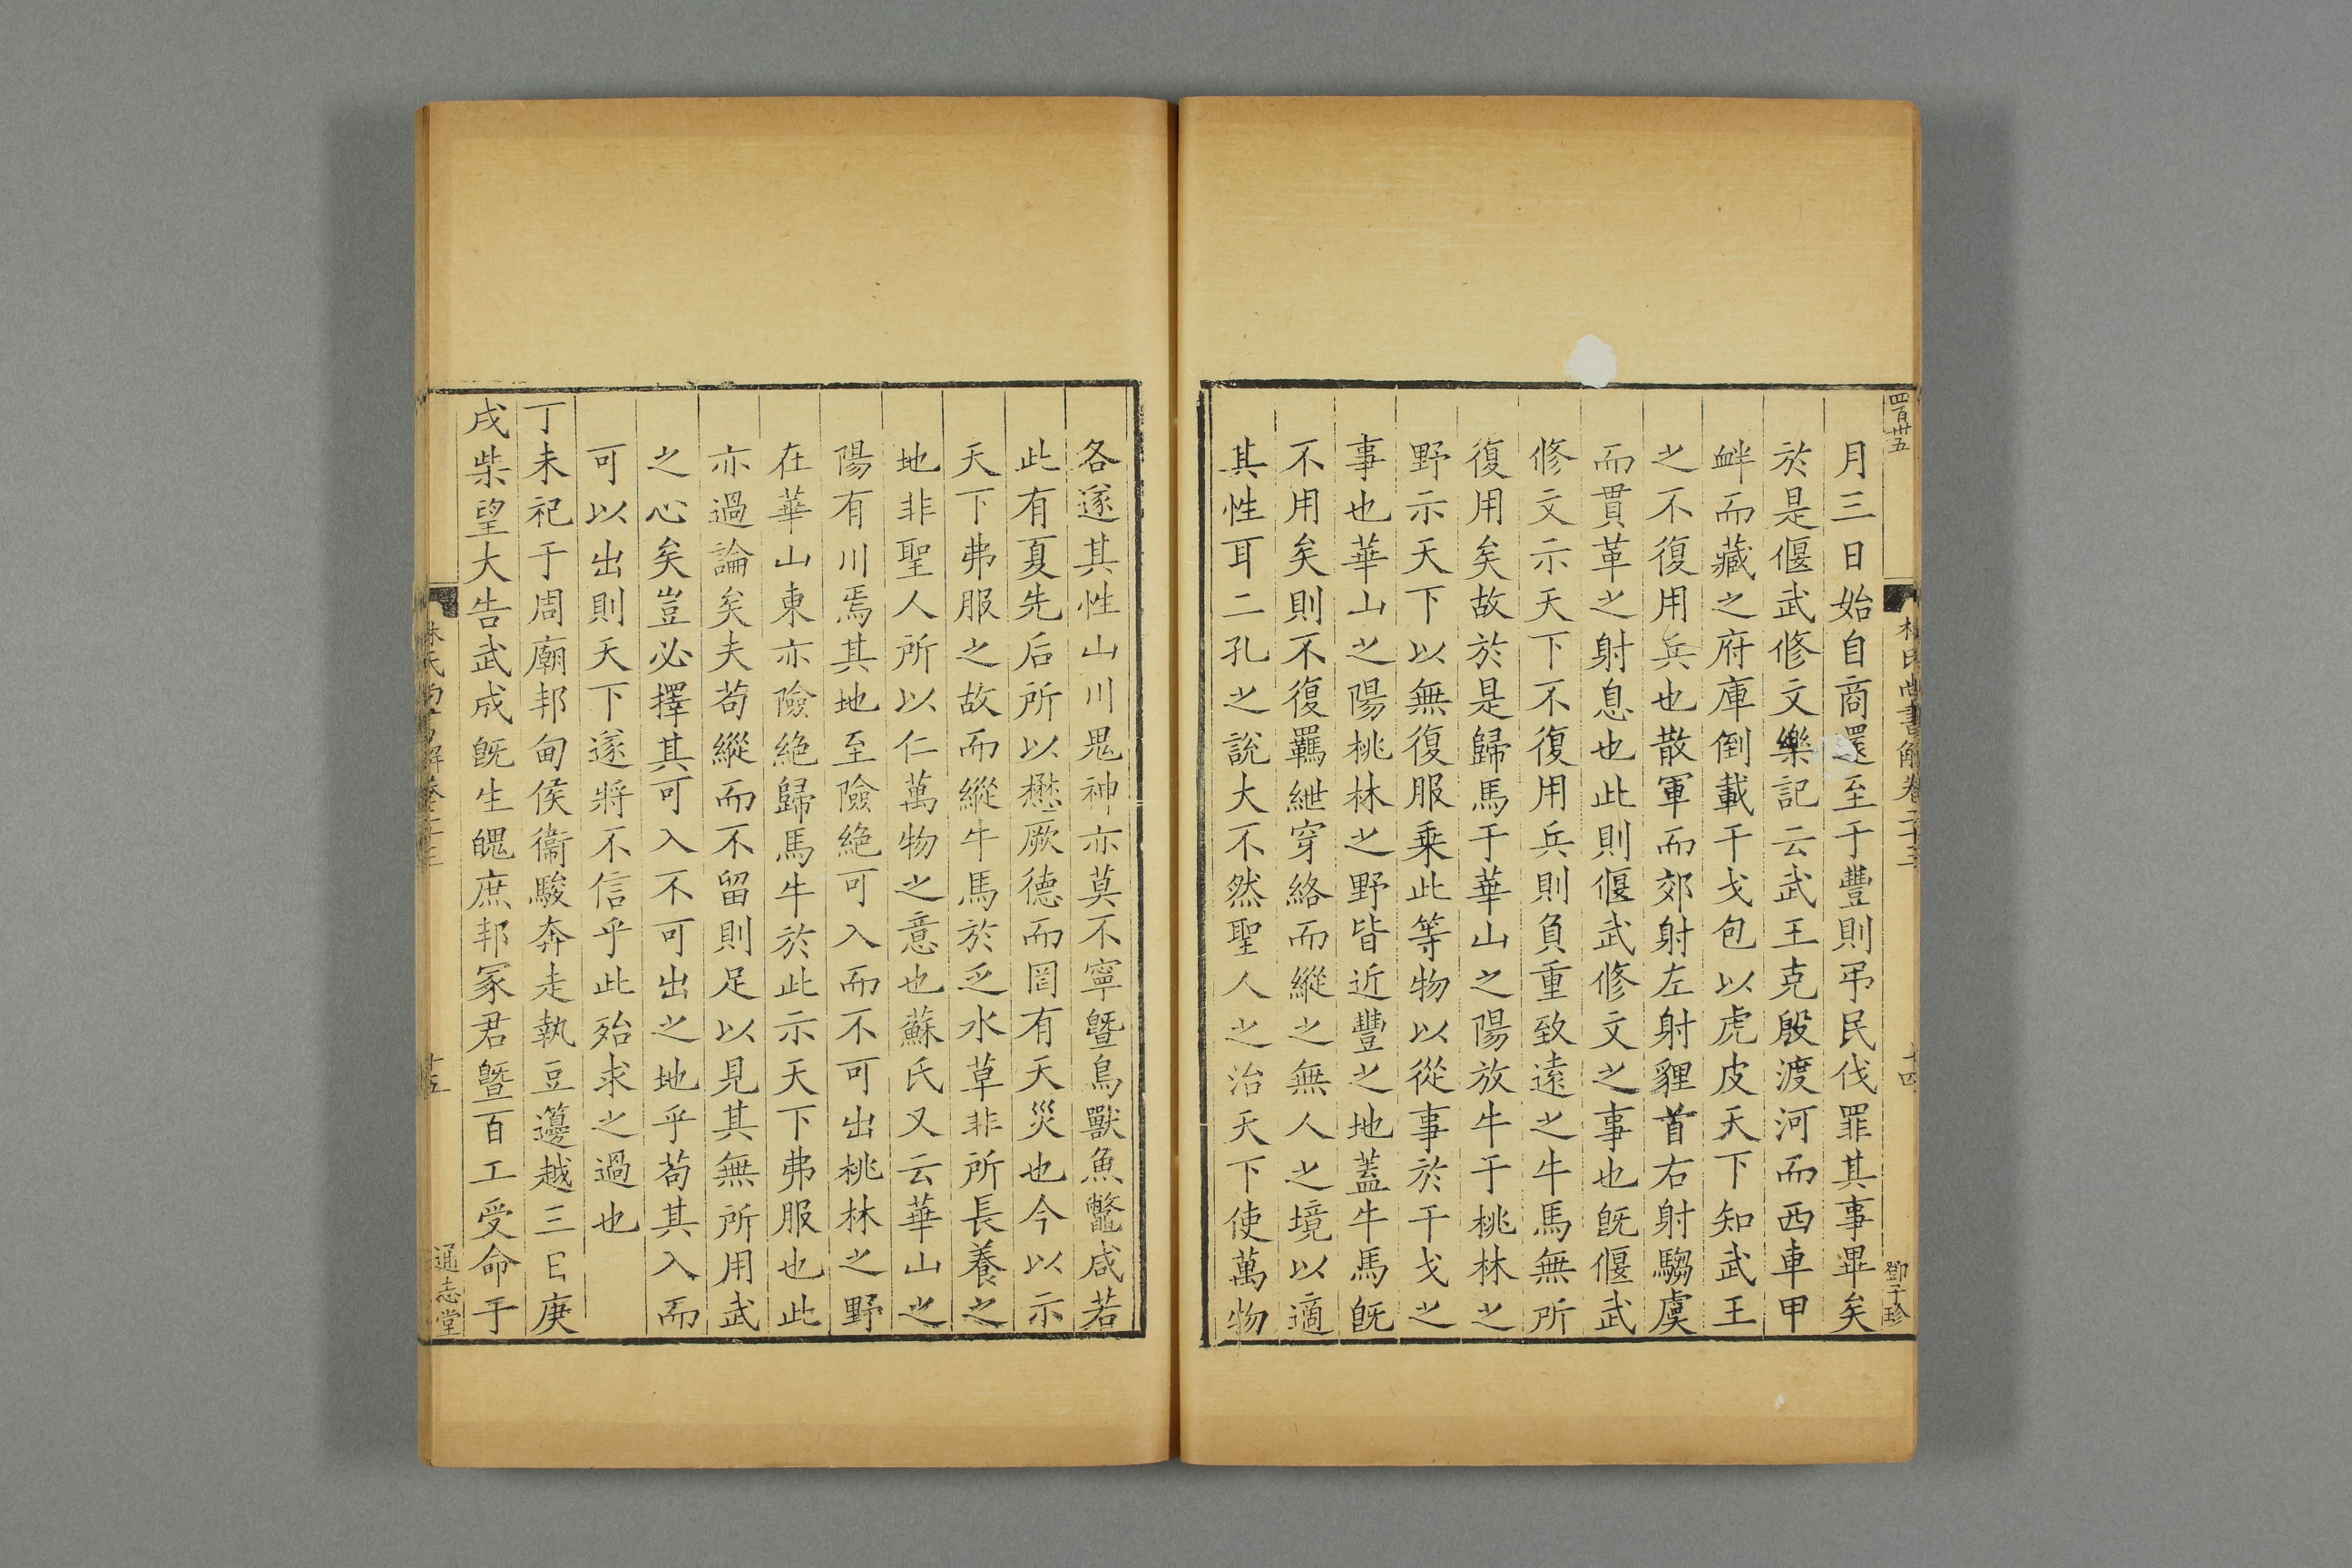 四百卅五
林氏尚書解卷二十三
十四
鄧子珍
月三日始自商還至于豐則弔民伐罪其事畢矣
於是偃武修文樂記云武王克殷渡河而西車甲
衅而藏之府庫倒載干戈包以虎皮天下知武王
之不復用兵也散軍而郊射左射貍首右射騶虞
而貫革之射息也此則偃武修文之事也旣偃武
修文示天下不復用兵則負重致逺之牛馬無所
復用矣故於是歸馬于華山之陽放牛于桃林之
野示天下以無復服乗此等物以從事於干戈之
事也華山之陽桃林之野皆近豐之地蓋牛馬旣
不用矣則不復羈紲穿絡而縱之無人之境以適
其性耳二孔之說大不然聖人之治天下使萬物
各遂其性山川鬼神亦莫不寧曁鳥獸魚鼈咸若
此有夏先后所以懋厥德而罔有天災也今以示
天下弗服之故而縱牛馬於乏水草非所長養之
地非聖人所以仁萬物之意也蘇氏又云華山之
陽有川焉其地至險絶可入而不可出桃林之野
在華山東亦險絶歸馬牛於此示天下弗服也此
亦過論矣夫苟縱而不留則足以見其無所用武
之心矣豈必擇其可入不可出之地乎苟其入而
可以出則天下遂將不信乎此殆求之過也
丁未祀于周廟邦甸侯衞駿奔走執豆籩越三日庚
戌柴望大告武成旣生魄庶邦冢君曁百工受命于
林氏尚書解卷二十三
十五
通志堂